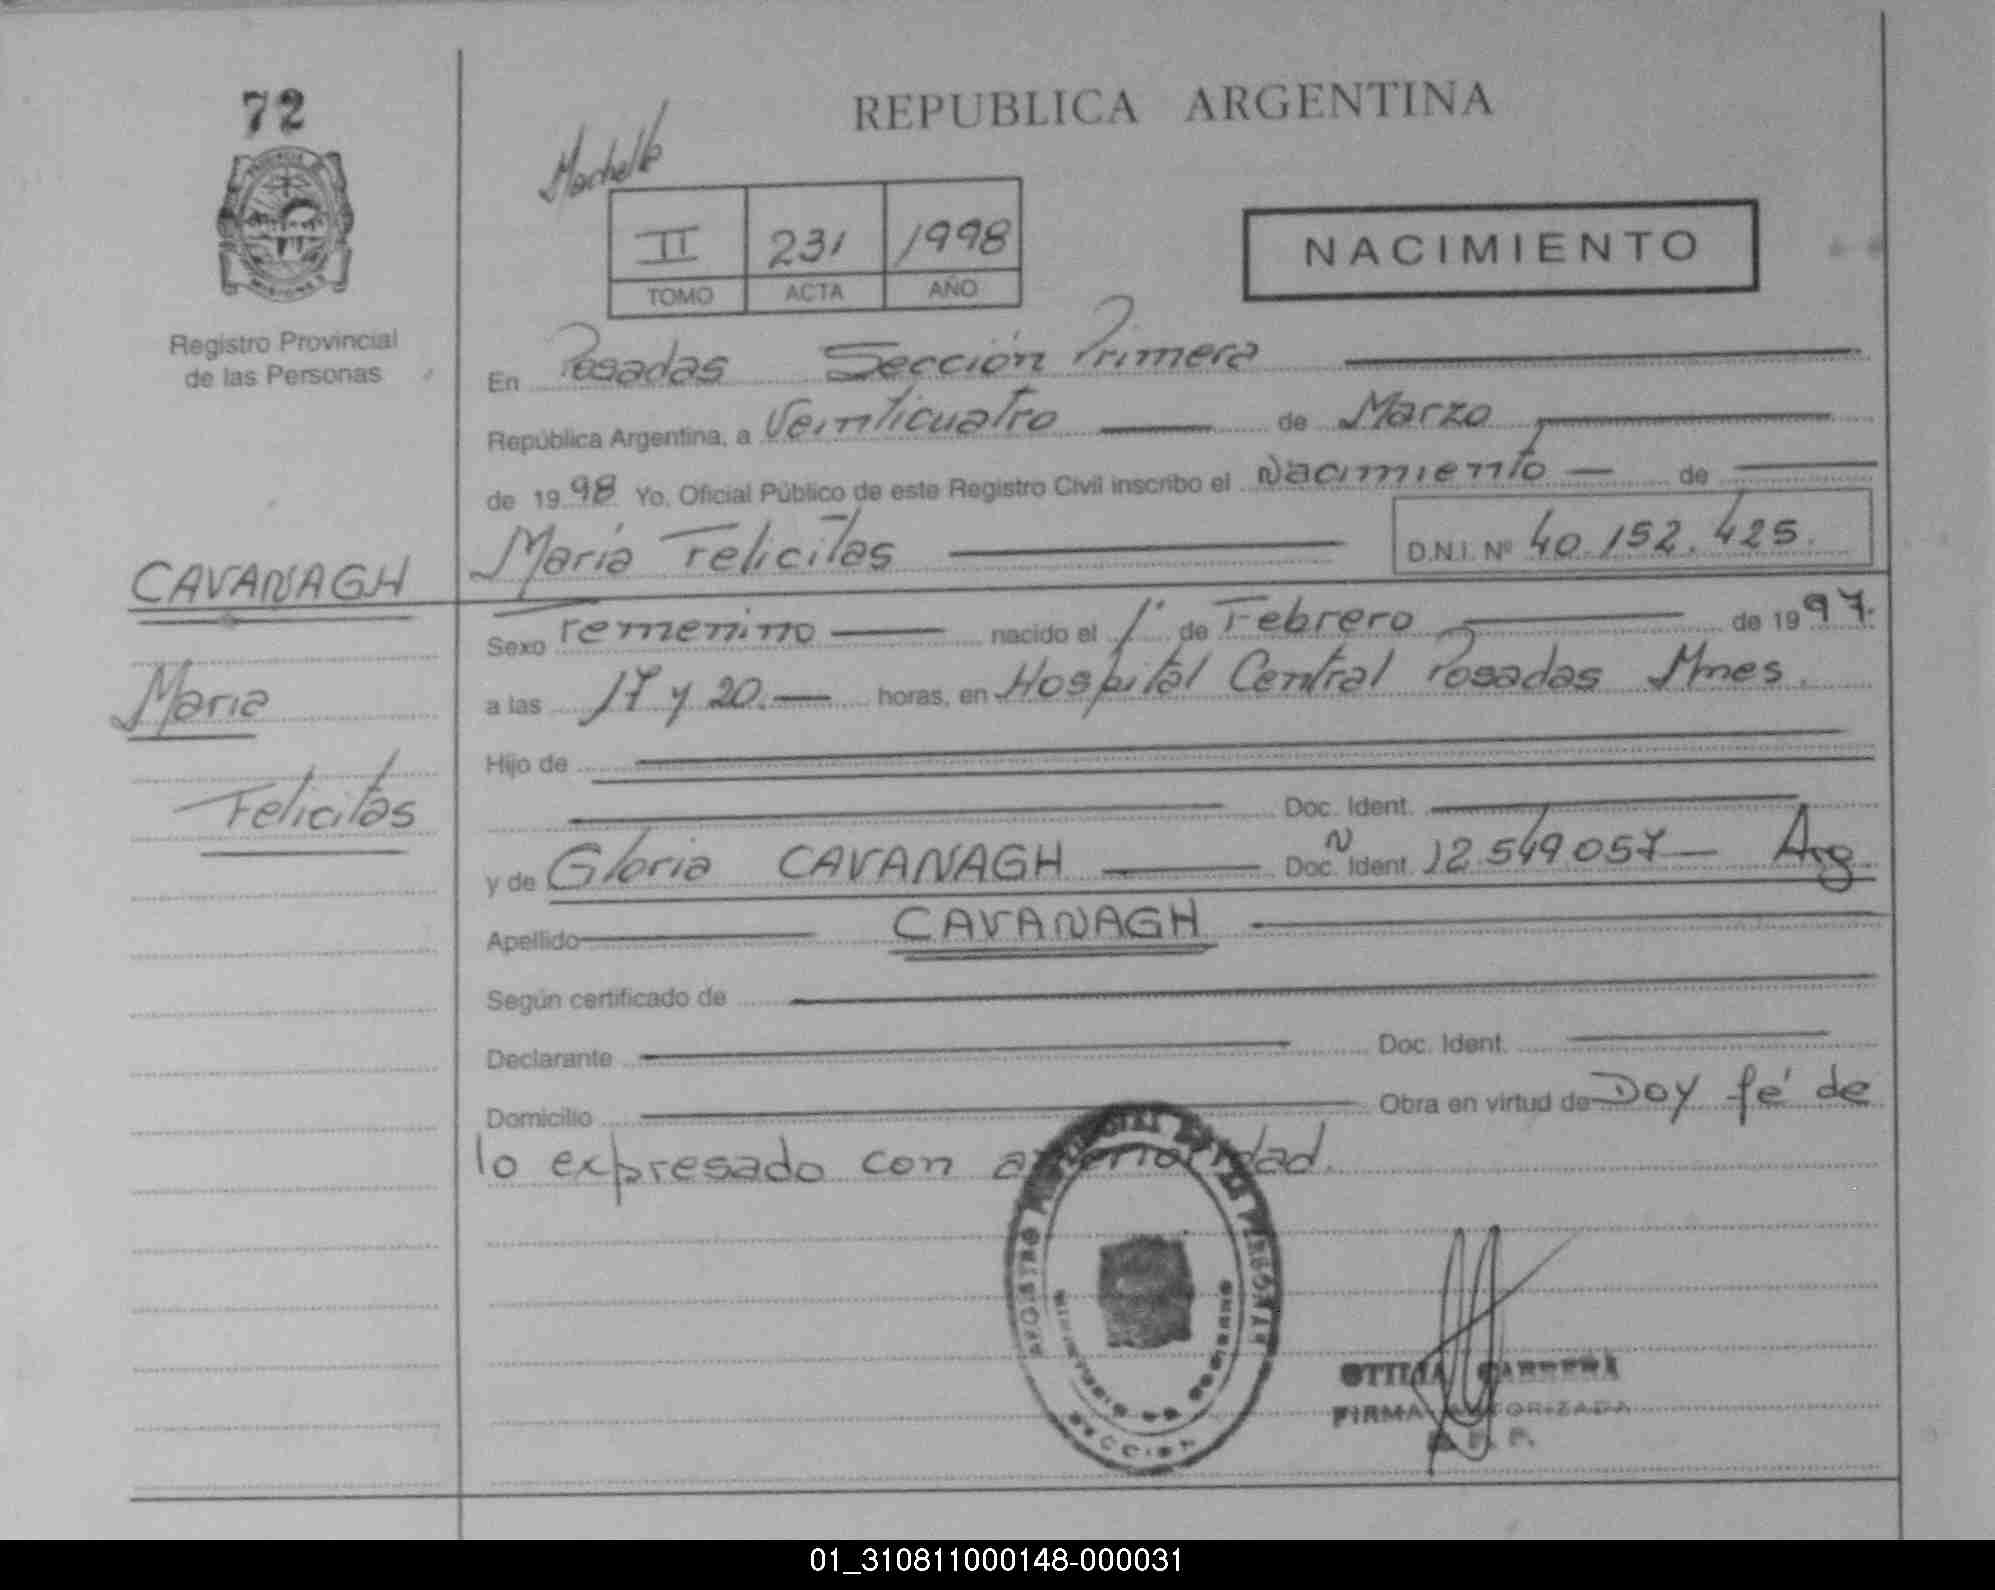 72
REPUBLICA ARGENTINA
II 231 1998
TOMO ACTA AÑO
NACIMIENTO
Registro Provincial
de las Personas
En Posadas Sección Primera
República Argentina, a Veinticuatro de Marzo
de 19 98 Yo, Oficial Público de este Registro Civil inscribo el Nacimiento de
María Felicitas D.N.I. Nº 40.152.425.
CAVANAGH
Maria
Felicitas
Sexo Femenino nacido el 1º de Febrero de 19 97.
a las 17 y 20. horas, en Hospital Central Posadas Mnes.
Hijo de
Doc. Ident.
y de Gloria CAVANAGH Doc. N Ident. 12.549.057 Arg
Apellido CAVANAGH
Según certificado de
Declarante Doc. Ident.
Domicilio Obra en virtud de Doy fé de
lo expresado con anterioridad.
REGISTRO PROVINCIAL DE LAS PERSONAS
MINISTERIO DE GOBIERNO
SECCION
FIRMA AUTORIZADA
01_310811000148-000031